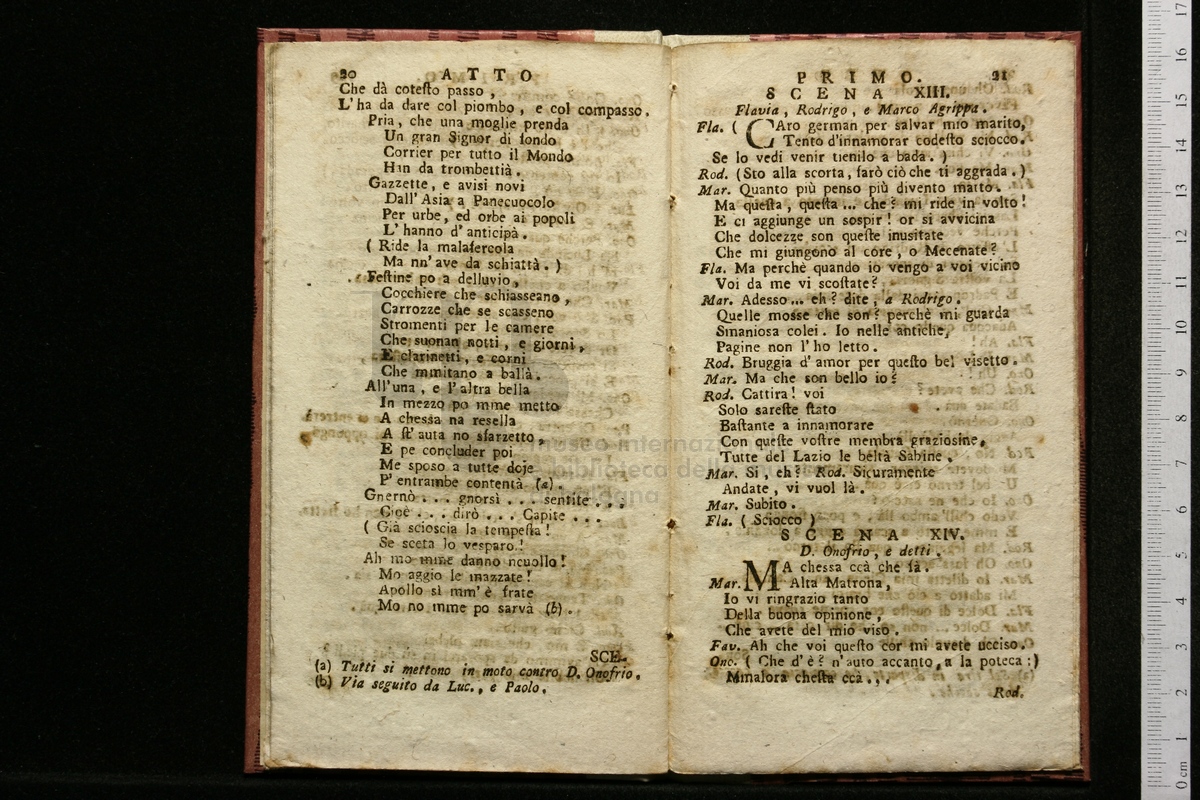 20 ATTO
Che dà cotesto passo ,
L' ha da dare col piombo , e col compasso .
Pria , che una moglie prenda
Un gran Signor di fondo
Corrier per tutto il Mondo
Han da trombettià .
Gazzette , e avisi novi
Dall' Asia a Panecuocolo
Per urbe, ed orbe ai popoli
L' hanno d' anticipà .
( Ride la malafercola
Ma nn' ave da schiattà . )
Festine po a delluvio ,
Cocchiere che schiasseano ,
Carrozze che se scasseno
Stromenti per le camere
Che suonan notti , e giorni ,
E clarinetti , e corni
Che mmitano a ballà .
All'una , e l'altra bella
In mezzo po mme metto
A chessa na resella
A st' auta no sfarzetto ,
E pe concluder poi
Me sposo a tutte doje
P' entrambe contentà (a) .
Gnernò . . . gnorsì . . . sentite . . .
Cioè . . . dirò . . . Capite . . .
( Già scioscia la tempesta !
Se sceta lo vesparo !
Ah mo mme danno ncuollo !
Mo aggio le mazzate !
Apollo si mm' è frate
Mo no mme po sarvà (b) .
SCE-
(a) Tutti si mettono in moto contro D. Onofrio .
(b) Via seguito da Luc. , e Paolo .
PRIMO. 21
SCENA XIII.
Flavia , Rodrigo , e Marco Agrippa .
Fla. ( CAro german per salvar mio marito,
Tento d'innamorar codesto sciocco.
Se lo vedi venir tienilo a bada . )
Rod. (Sto alla scorta , farò ciò che ti aggrada . )
Mar. Quanto più penso più divento matto .
Ma questa , questa ... che ? mi ride in volto !
E ci aggiunge un sospir ! or si avvicina
Che dolcezze son queste inusitate
Che mi giungono al core , o Mecenate ?
Fla. Ma perchè quando io vengo a voi vicino
Voi da me vi scostate ?
Mar. Adesso ... eh ? dite , a Rodrigo .
Quelle mosse che son ? perchè mi guarda
Smaniosa colei . Io nelle antiche,
Pagine non l' ho letto .
Rod. Bruggia d' amor per questo bel visetto .
Mar. Ma che son bello io ?
Rod. Cattira ! voi
Solo sareste stato
Bastante a innamorare
Con queste vostre membra graziosine,
Tutte del Lazio le beltà Sabine .
Mar. Si , eh ? Rod. Sicuramente
Andate , vi vuol là .
Mar. Subito .
Fla. ( Sciocco )
SCENA XIV.
D. Onofrio , e detti .
Mar. MA chessa ccà che fà .
Alta Matrona ,
Io vi ringrazio tanto
Della buona opinione ,
Che avete del mio viso .
Fav. Ah che voi questo cor mi avete ucciso.
Ono. ( Che d' è ? n'auto accanto , a la poteca : )
Mmalora chesta ccà . . .
Rod.